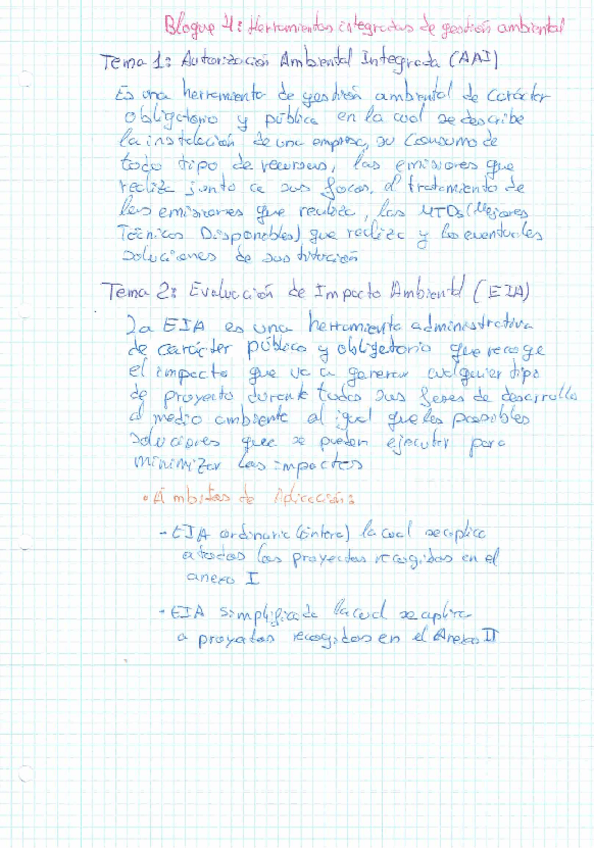 Bloque 4: Herramientas integradas de gestión ambiental
Tema 1: Autorización Ambiental Integrada (AAI)
Es una herramienta de gestión ambiental de carácter
obligatorio y pública en la cual se describe
la instalación de una empresa, su consumo de
todo tipo de recursos, las emisiones que
realiza junto a sus focos, el tratamiento de
las emisiones que realiza, las MTDs (Mejores
Técnicas Disponibles) que realiza y las eventuales
soluciones de sustitución
Tema 2: Evaluación de Impacto Ambiental (EIA)
La EIA es una herramienta administrativa
de carácter público y obligatorio que recoge
el impacto que va a generar cualquier tipo
de proyecto durante todas sus fases de desarrollo
al medio ambiente al igual que las posibles
soluciones que se pueden ejecutar para
minimizar los impactos
• Ámbitos de Aplicación:
- EIA ordinaria (entera) la cual se aplica
a todos los proyectos recogidos en el
anexo I
- EIA simplificada la cual se aplica
a proyectos recogidos en el Anexo II